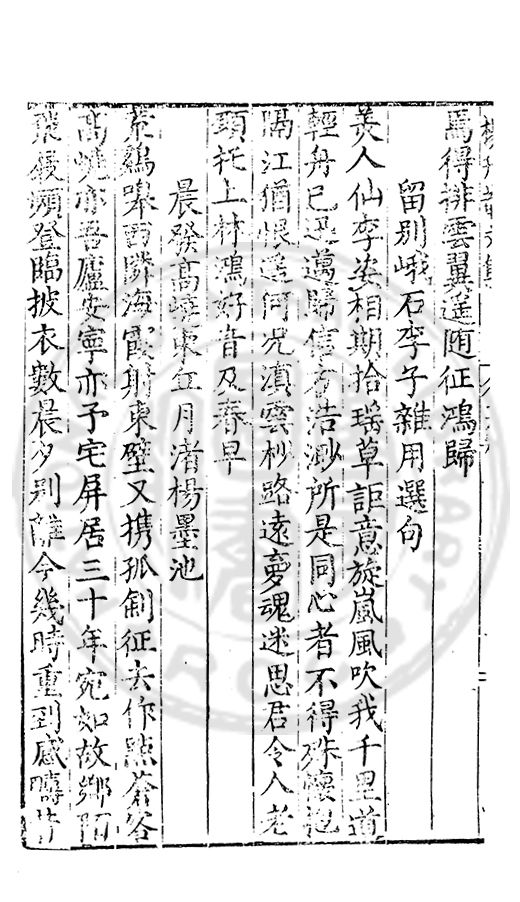 焉得排雲翼遥隨征鴻歸
留别峨石李子雜用選句
美人仙李姿相期拾瑶草詎意旋嵐風吹我千里道
輕舟已迅邁歸信方浩渺所是同心者不得殊懷抱
隔江猶恨遥何况滇雲杪路遠夢魂迷思君令人老
頭托上林鴻好音及春早
晨發髙嶢柬丘月渚楊墨池
荒鷄嘷西隣海霞射東壁又携孤劍征去作點蒼客
髙嶢亦吾廬安寧亦予宅屏居三十年宛如故鄉陌
頻登臨披衣數晨夕别離今幾時重到感疇昔